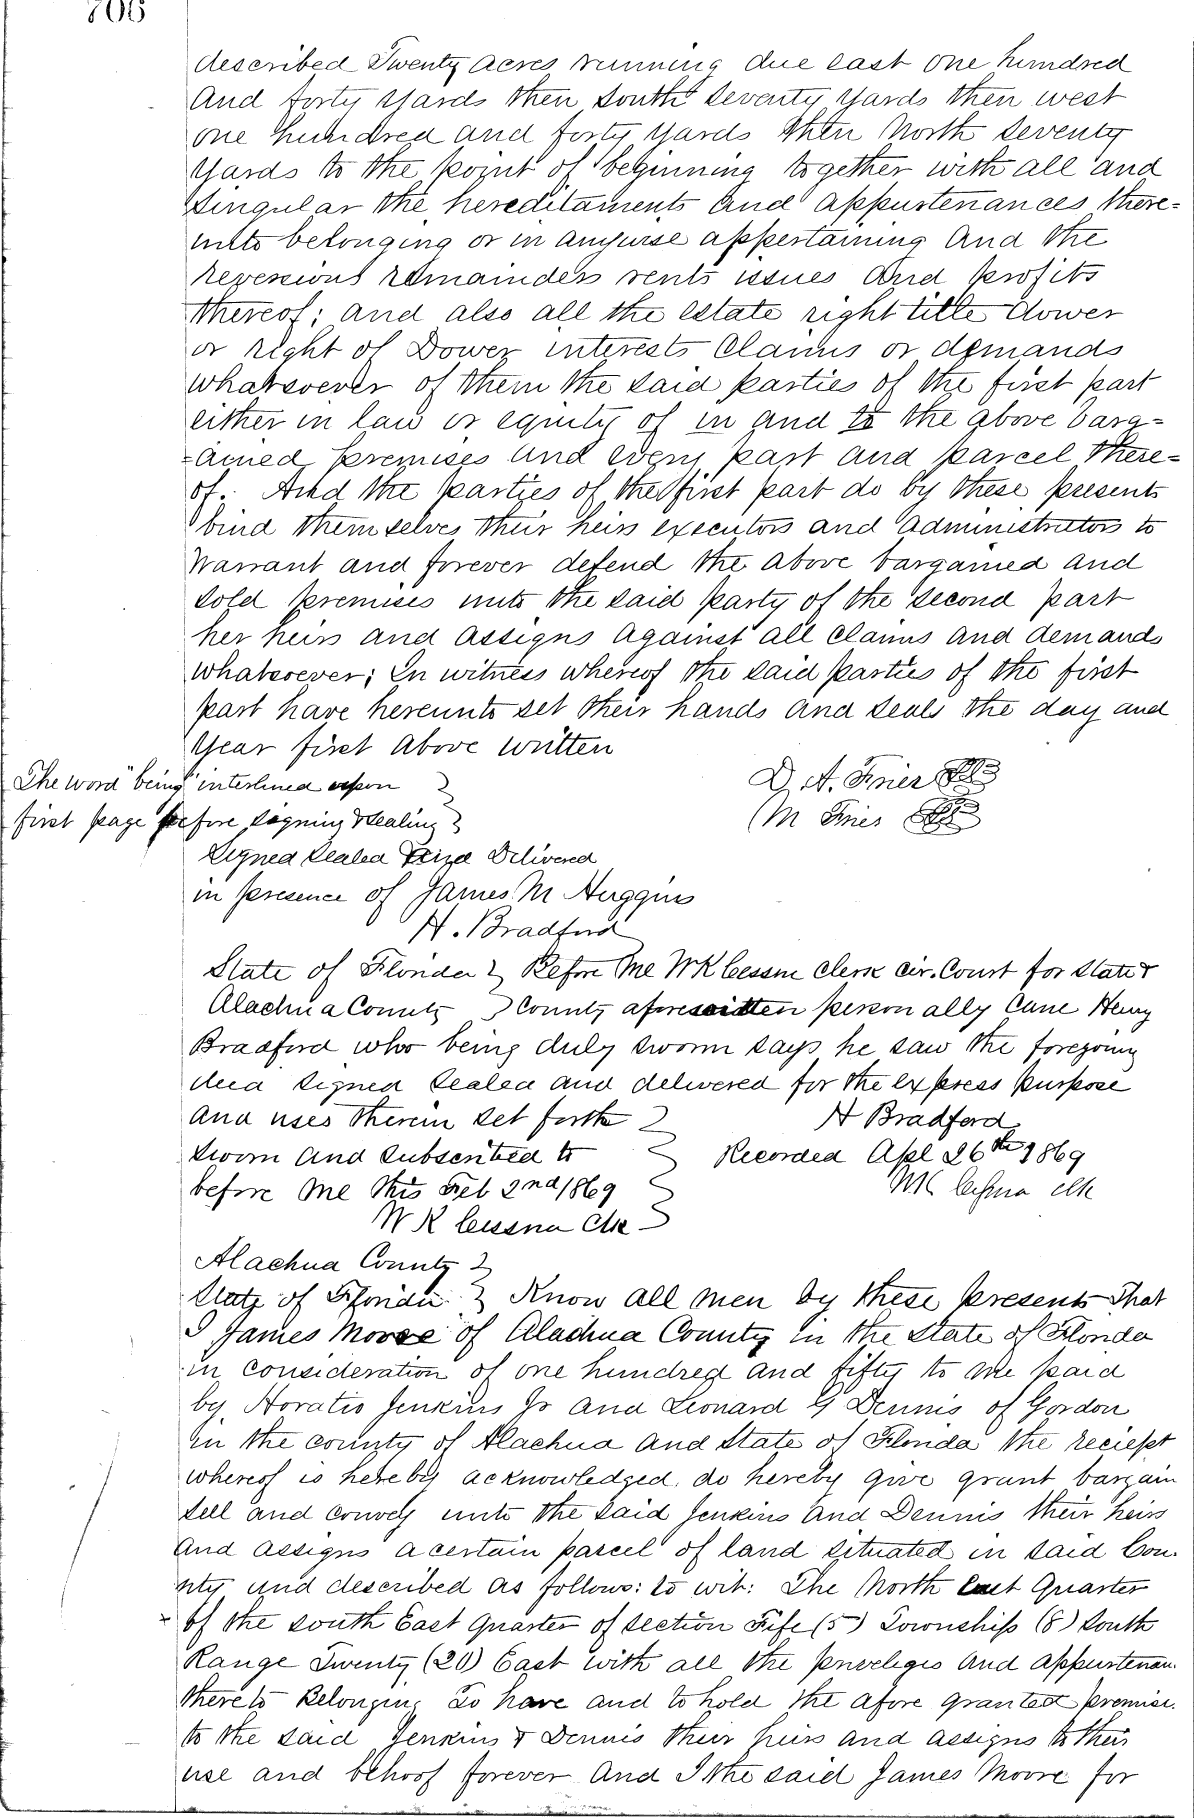 706
described Twenty acres running due east one hundred
and forty yards then south seventy yards then west
one hundred and forty yards then North seventy
yards to the point of beginning together with all and
singular the hereditaments and appurtenances there=
unto belonging or in anywise appertaining and the
reversions remainders rents issues and profits
thereof; and also all the estate right title dower
or right of Dower interests claims or demands
whatsoever of them the said parties of the first part
either in law or equity of in and to the above barg=
=ained premises and every part and parcel there=
of. And the parties of the first part do by these presents
bind themselves their heirs executors and administrators to
Warrant and forever defend the above bargained and
sold premises unto the said party of the second part
her heirs and assigns against all claims and demands
whatsoever; In witness whereof the said parties of the first
part have hereunto set their hands and seals the day and
year first above written
The word "being" interlined upon
D. A. Frier
first page before signing & sealing
M Frier
Signed Sealed and Delivered
in presence of James M Huggins
H. Bradford
State of Florida } Before me WK Cessna clerk cir. Court for state &
Alachua County } County aforesaid personally Came Henry
Bradford who being duly sworn says he saw the foregoing
deed signed sealed and delivered for the express purpose
and uses therein set forth } H Bradford
sworn and subscribed to } Recorded Apl 26th 1869
before me this Feb 2nd 1869 } WK Cessna clk
W K Cessna Clk }
Alachua County }
State of Florida } Know all men by these presents That
I James Moore of Alachua County in the State of Florida
in consideration of one hundred and fifty to me paid
by Horatio Jenkins Jr and Leonard G Dennis of Gordon
in the county of Alachua and State of Florida the reciept
whereof is hereby acknowledged, do hereby give grant bargain
sell and convey unto the said Jenkins and Dennis their heirs
and assigns a certain parcel of land situated in said Cou-
nty and described as follows: to wit: The North East Quarter
of the south East Quarter of section Fife (5) Township (8) south
Range Twenty (20) East with all the priveleges and appurtenan.
thereto Belonging To have and to hold the afore granted premise.
to the said Jenkins & Dennis their heirs and assigns to their
use and behoof forever and I the said James Moore for